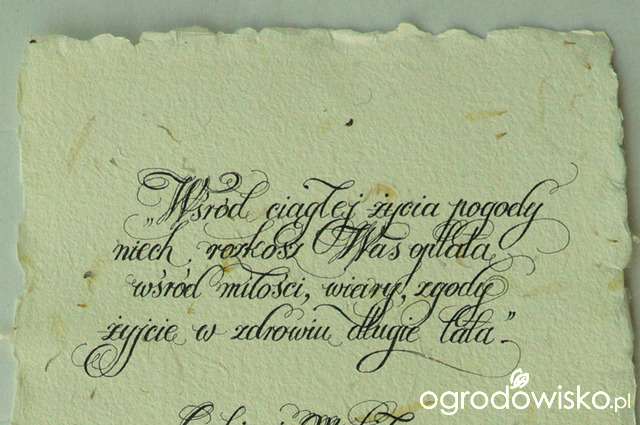 „Wśród ciągłej życia pogody
niech rozkosz Was oplata,
wśród miłości, wiary, zgody
żyjcie w zdrowiu długie lata."
ogrodowisko.pl